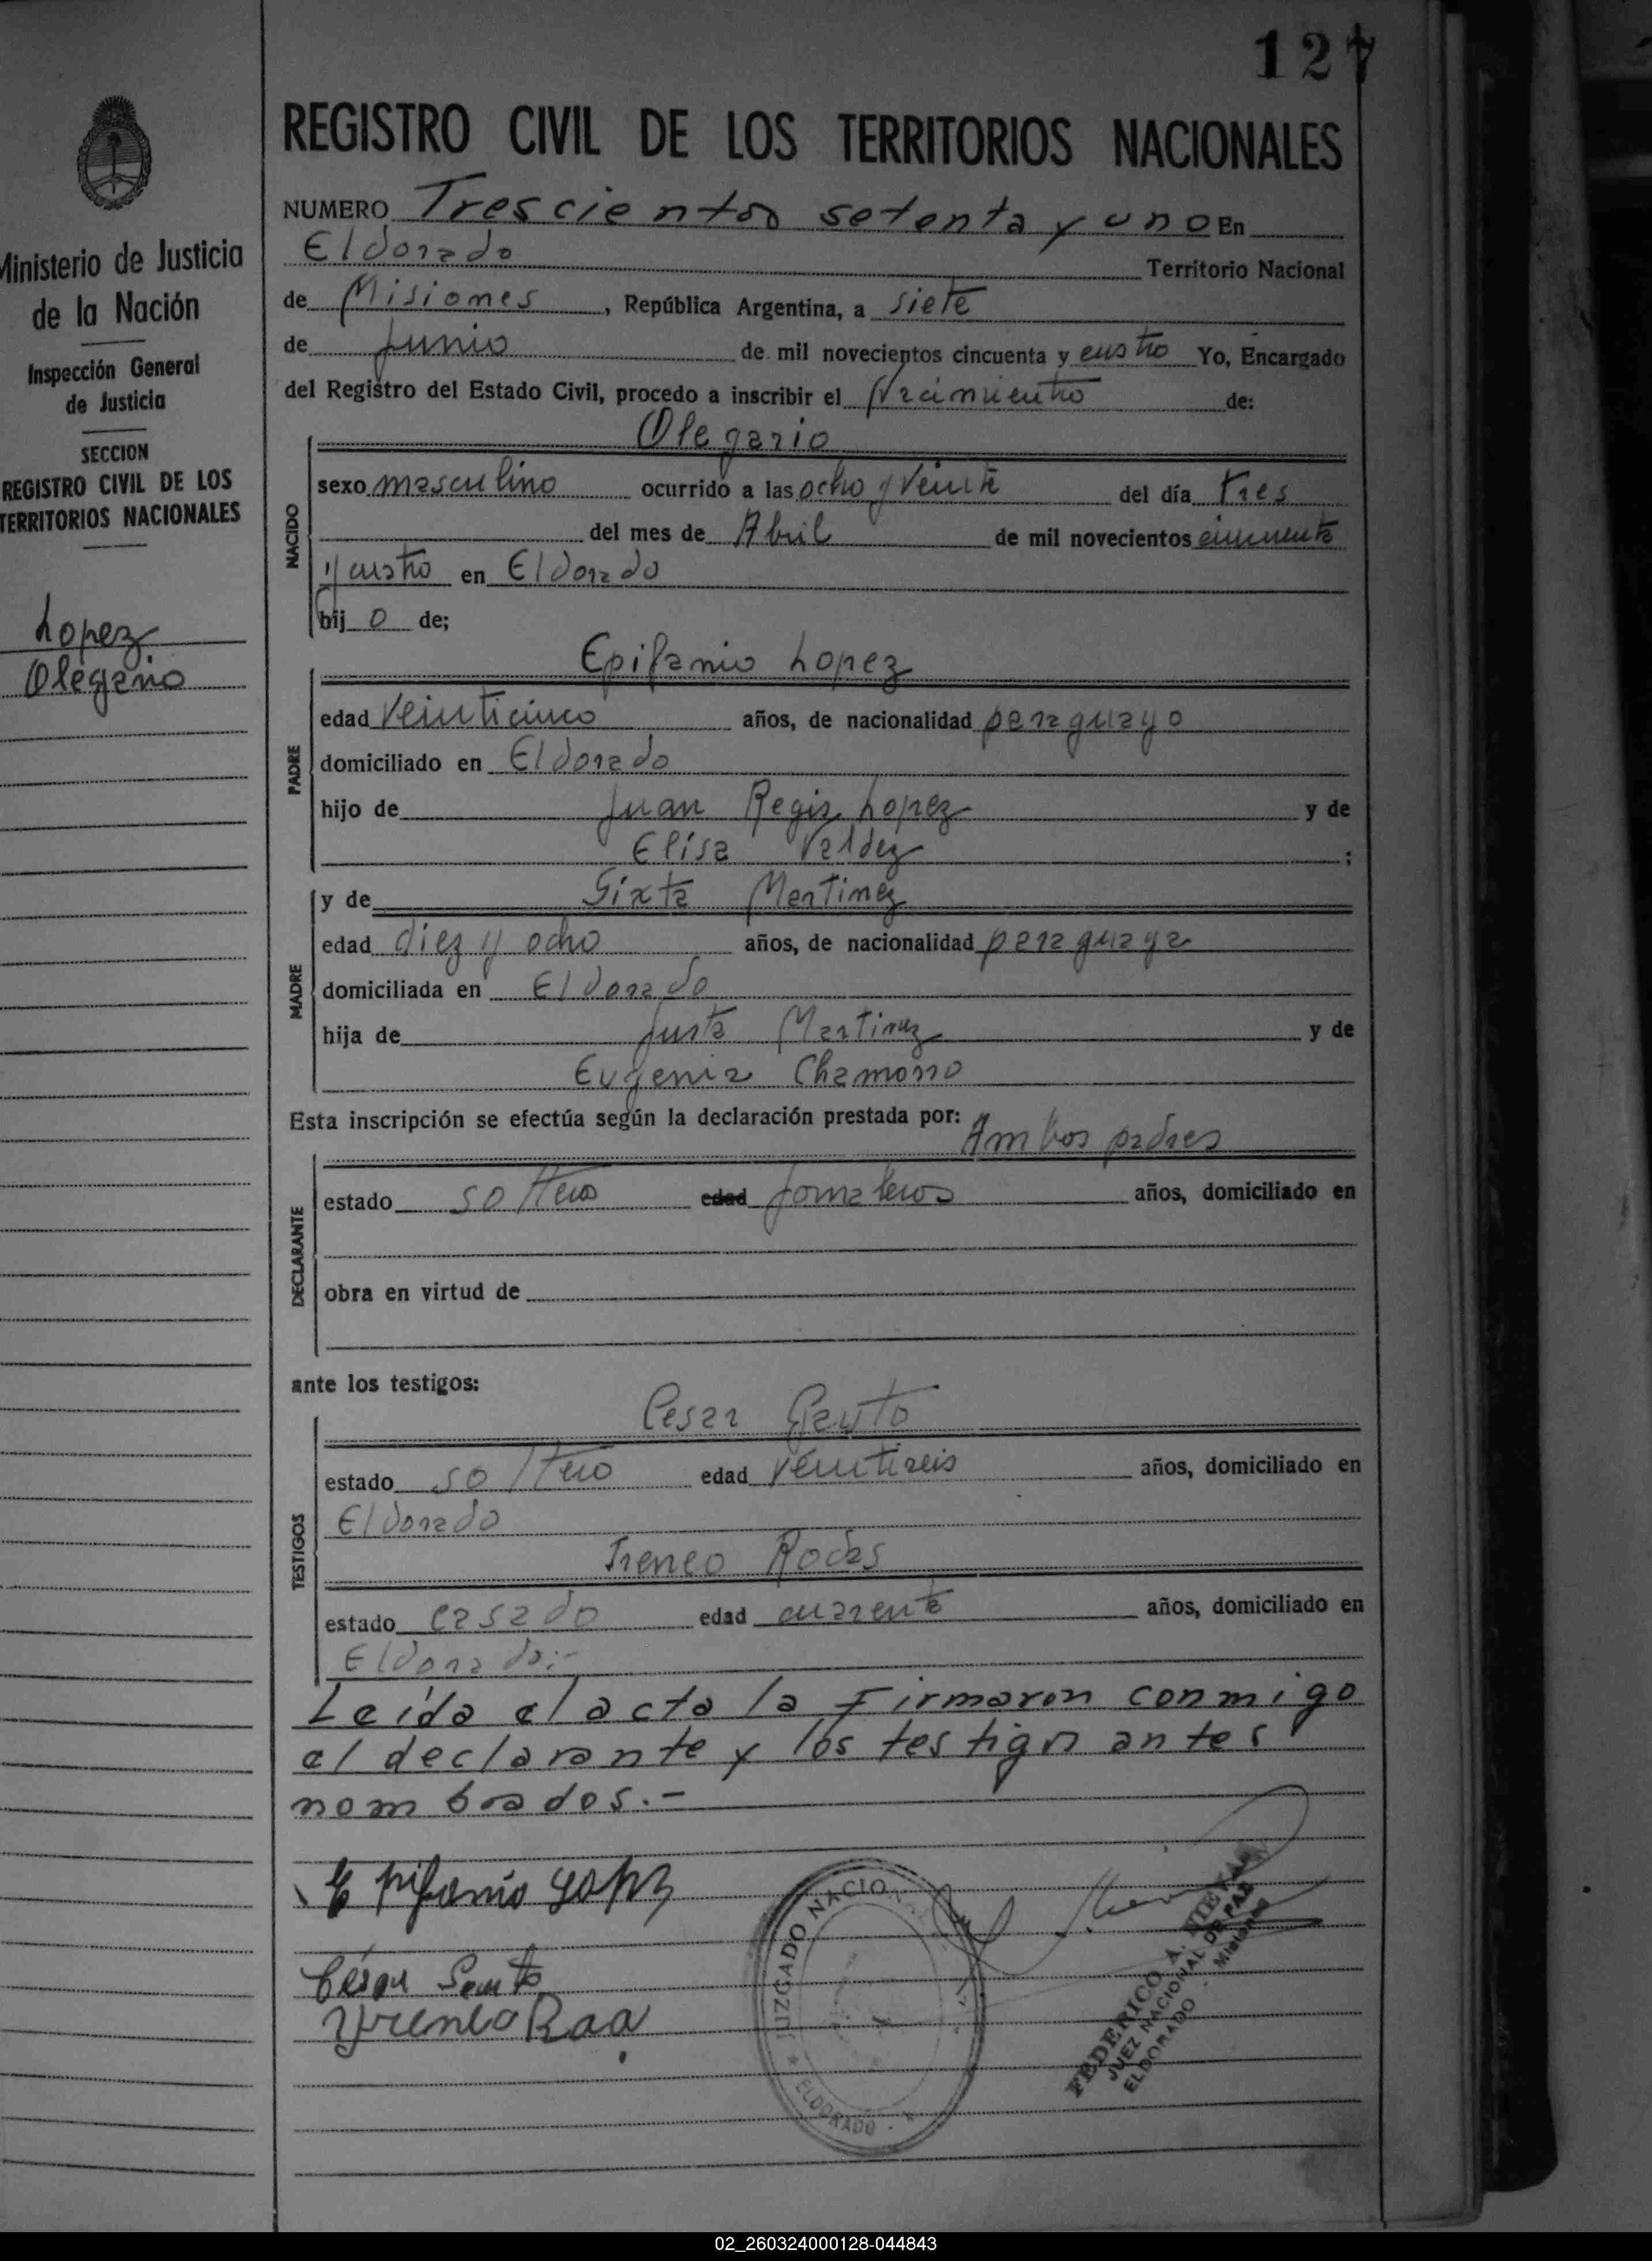 127
REGISTRO CIVIL DE LOS TERRITORIOS NACIONALES
NUMERO Trescientos setenta y uno En
Eldorado Territorio Nacional
de Misiones, República Argentina, a siete
de Junio de mil novecientos cincuenta y cuatro Yo, Encargado
del Registro del Estado Civil, procedo a inscribir el Nacimiento de:
Olegario
NACIDO
sexo masculino ocurrido a las ocho y veinte del día tres
del mes de Abril de mil novecientos cincuenta
y cuatro en Eldorado
hij o de;
Epifanio Lopez
PADRE
edad veinticinco años, de nacionalidad paraguayo
domiciliado en Eldorado
hijo de Juan Regis Lopez y de
Elisa Valdez ;
MADRE
y de Sixta Martinez
edad diez y ocho años, de nacionalidad paraguaya
domiciliada en Eldorado
hija de Justa Martinez y de
Eugenia Chamorro
Esta inscripción se efectúa según la declaración prestada por:
Ambos padres
DECLARANTE
estado solteros edad jornaleros años, domiciliado en
obra en virtud de
ante los testigos:
Cesar
TESTIGOS
estado soltero edad veintiseis años, domiciliado en
Eldorado
Ireneo Rodas
estado casado edad cuarenta años, domiciliado en
Eldorado:-
Leída el acta la Firmaron conmigo
el declarante y los testigos antes
nombrados.-
Epifanio Lopez
César
Yreneo
JUZGADO NACIO
ELDORADO
FEDERICO A.
JUEZ NACIONAL DE PAZ
ELDORADO - Misiones
Ministerio de Justicia
de la Nación
Inspección General
de Justicia
SECCION
REGISTRO CIVIL DE LOS
TERRITORIOS NACIONALES
Lopez
Olegario
02_260324000128-044843